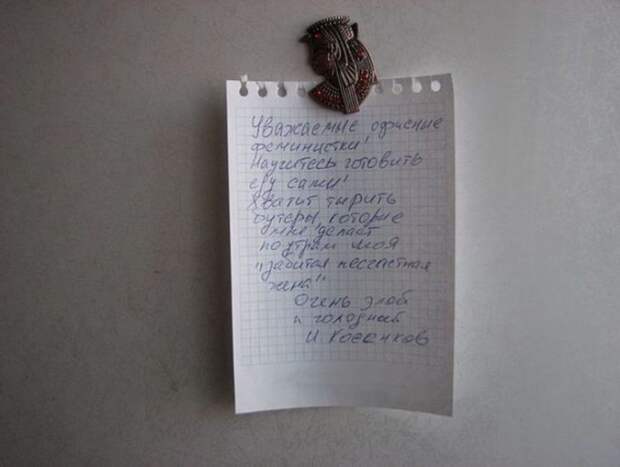 Уважаемые офисные
феминистки!
Научитесь готовить
еду сами!
Хватит тырить
бутеры, которые
мне делает
по утрам моя
"забитая несчастная
жена!"
Очень злой
и голодный
И.